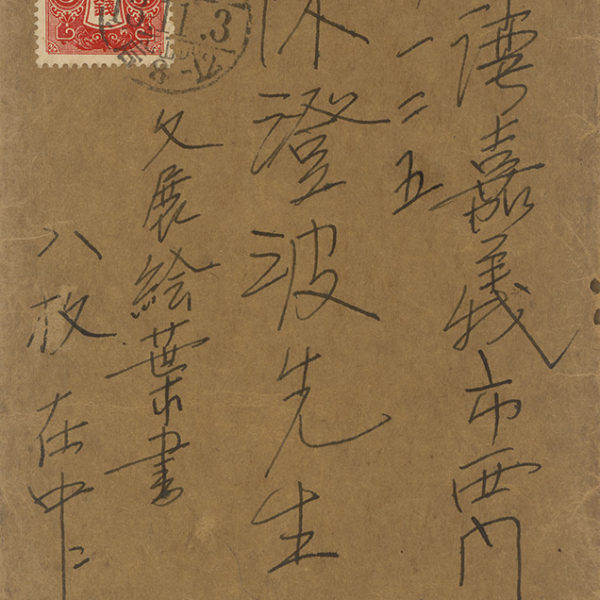 湾嘉義市西門
一二五
陳澄波先生
文展絵葉書
八枚在中
1.3